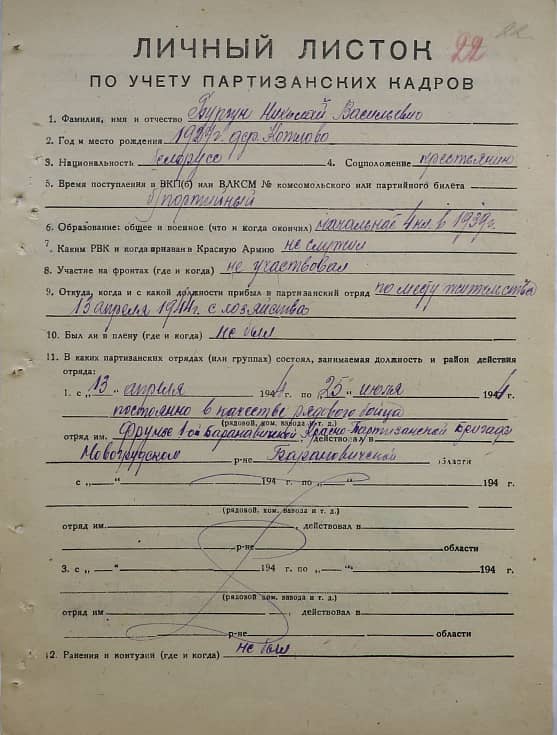 22
22
ЛИЧНЫЙ ЛИСТОК
ПО УЧЕТУ ПАРТИЗАНСКИХ КАДРОВ
1. Фамилия, имя и отчество Бурчун Николай Васильевич
2. Год и место рождения 1929 г. дер. Котлово
3. Национальность белорусс 4. Соцположение крестьянин
5. Время поступления в ВКП(б) или ВЛКСМ № комсомольского или партийного билета
б/партийный
6. Образование: общее и военное (что и когда окончил) начальное 4 кл. в 1939 г.
7. Каким РВК и когда призван в Красную Армию не служил
8. Участие на фронтах (где и когда) не участвовал
9. Откуда, когда и с какой должности прибыл в партизанский отряд по месту жительства
13 апреля 1944 г. с хозяйства
10. Был ли в плену (где и когда) не был
11. В каких партизанских отрядах (или группах) состоял, занимаемая должность и район действия
отряда:
1. с „13“ апреля 1944 г. по „25“ июля 1944 г.
постоянно в качестве рядового бойца
(рядовой, ком. взвода и т. д.)
отряд им. Фрунзе 1-ой Барановичской Красно-Партизанской бригады, действовал в
Новогрудском р-не Барановичской области
с „—“ 194 г. по „—“ 194 г.
(рядовой, ком. взвода и т. д.)
отряд им. , действовал в
р-не области
3. с „—“ 194 г. по „—“ 194 г.
(рядовой, ком. взвода и т. д.)
отряд им. , действовал в
р-не области
12. Ранения и контузии (где и когда) не был